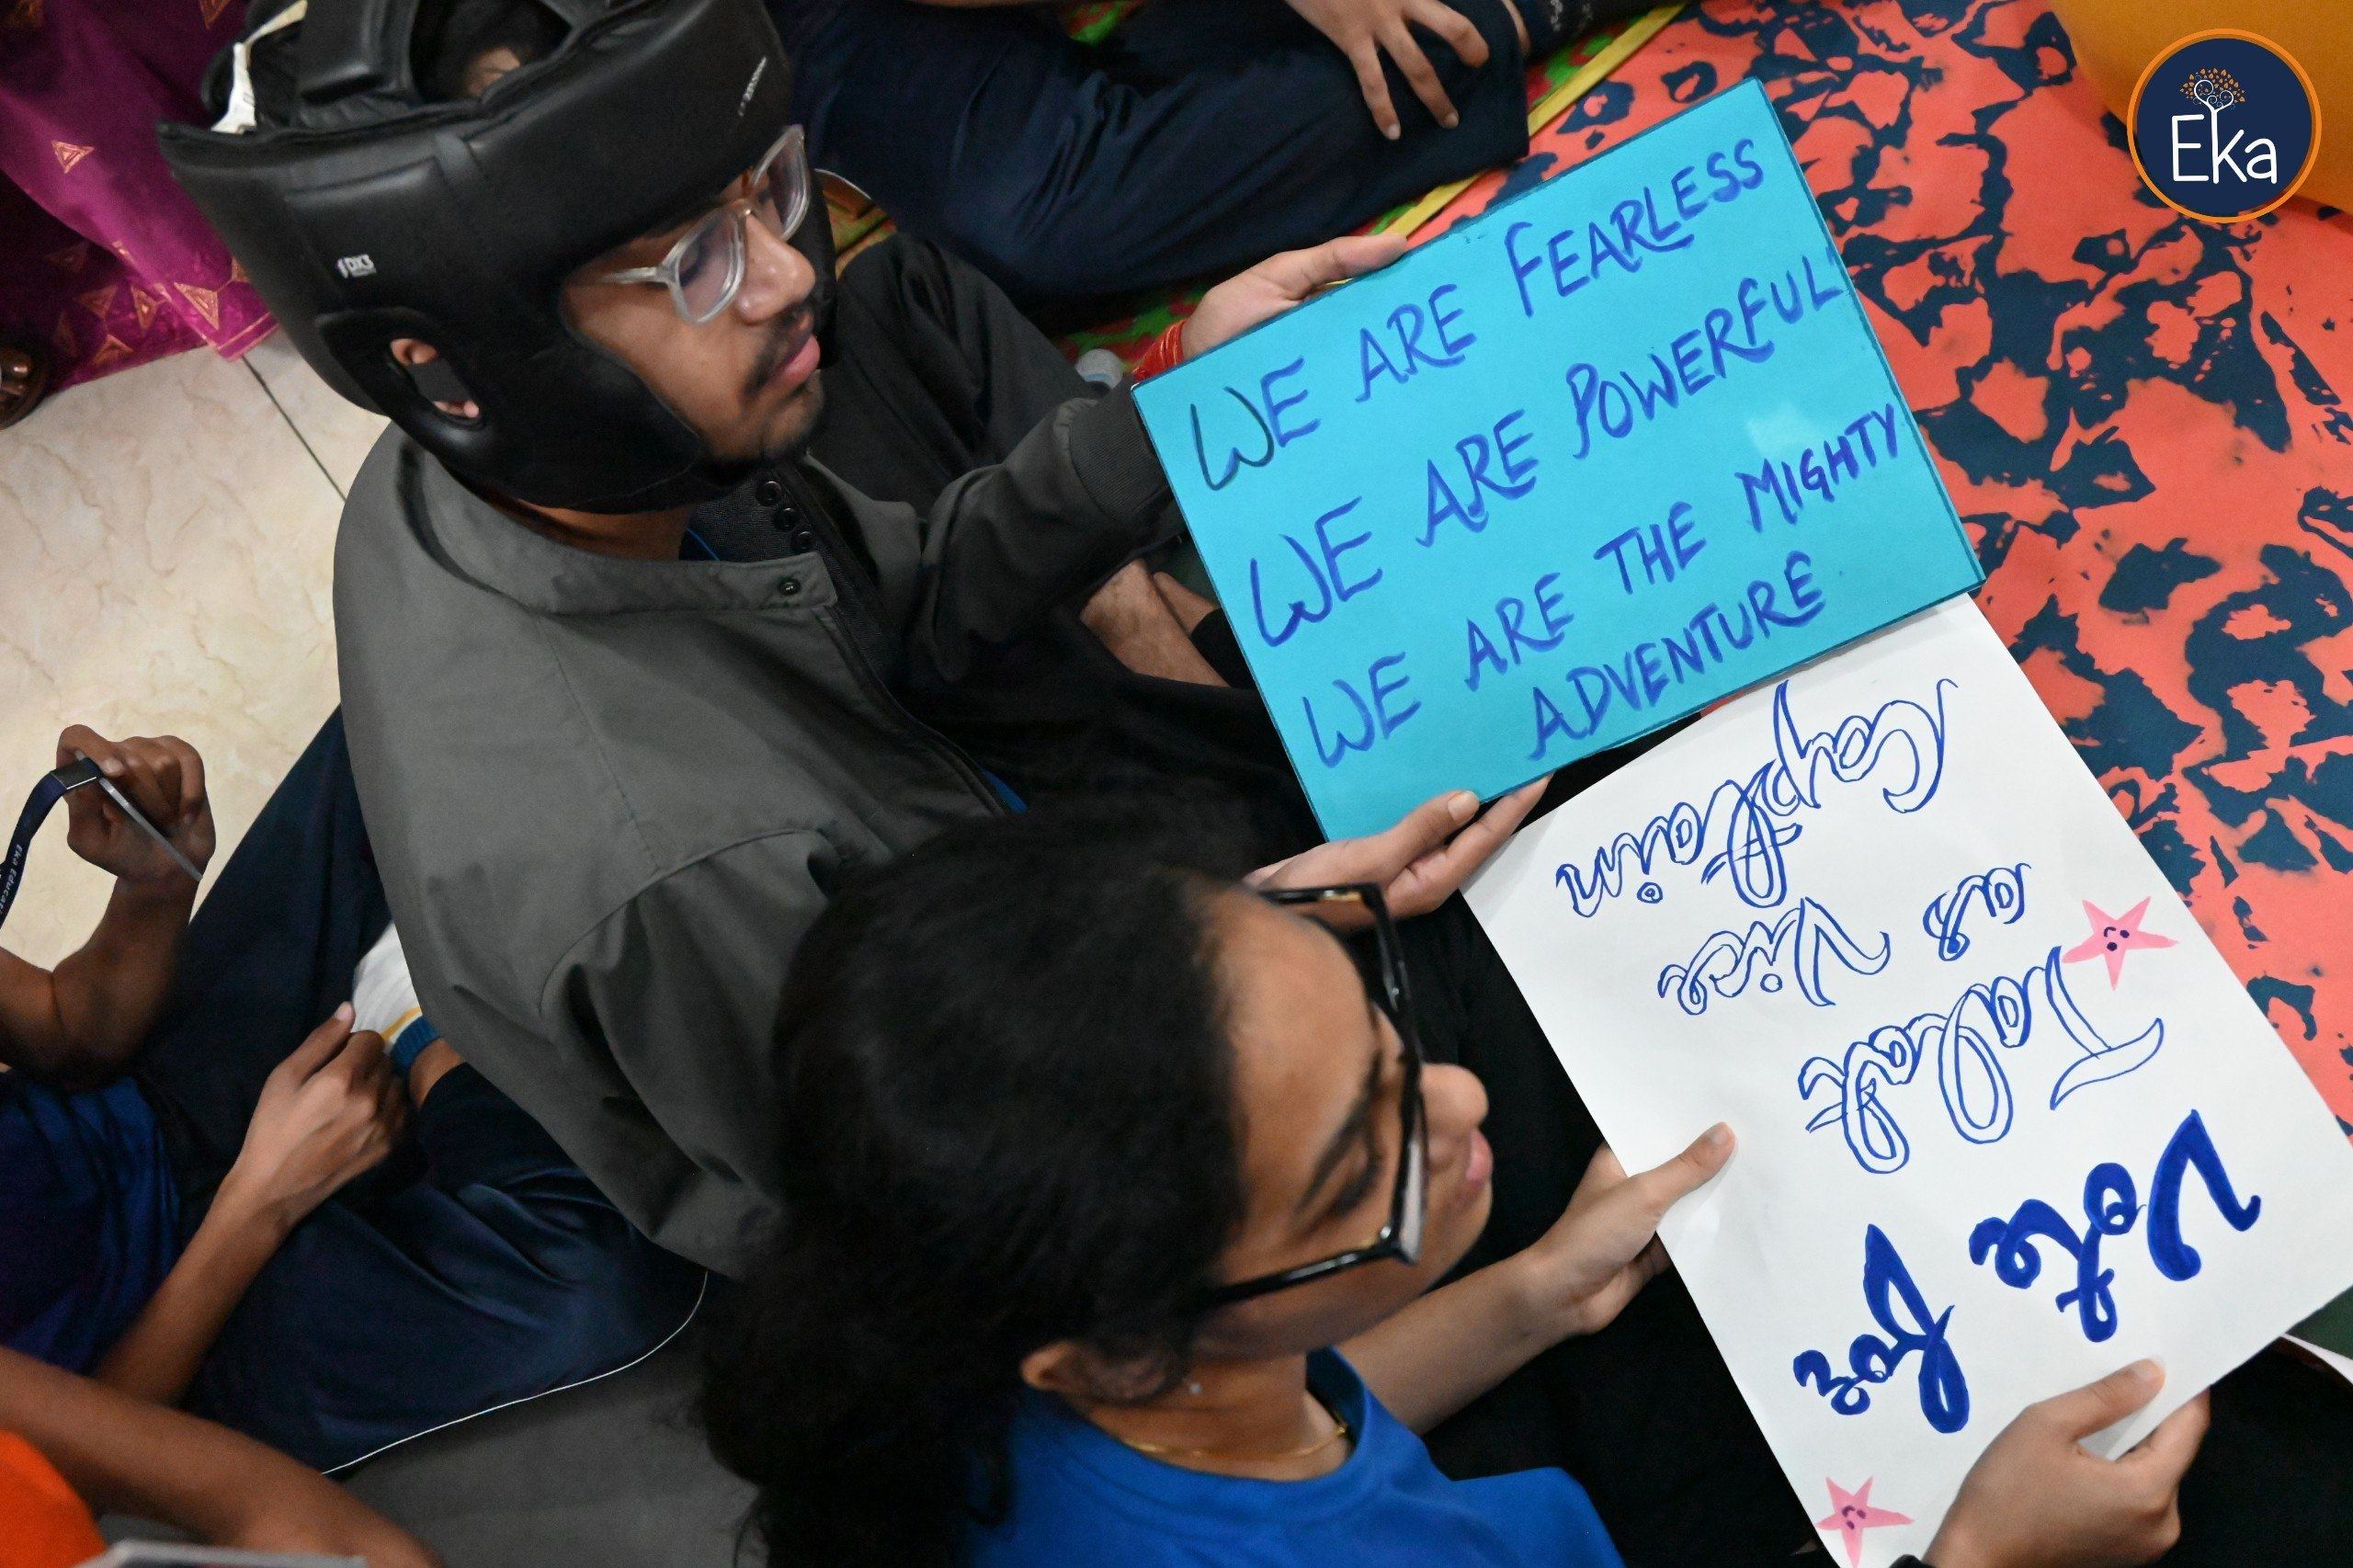 Eka
WE ARE FEARLESS
WE ARE POWERFUL
WE ARE THE MIGHTY
ADVENTURE
Vote For
Talat
as Vice
Cayptain
Eka